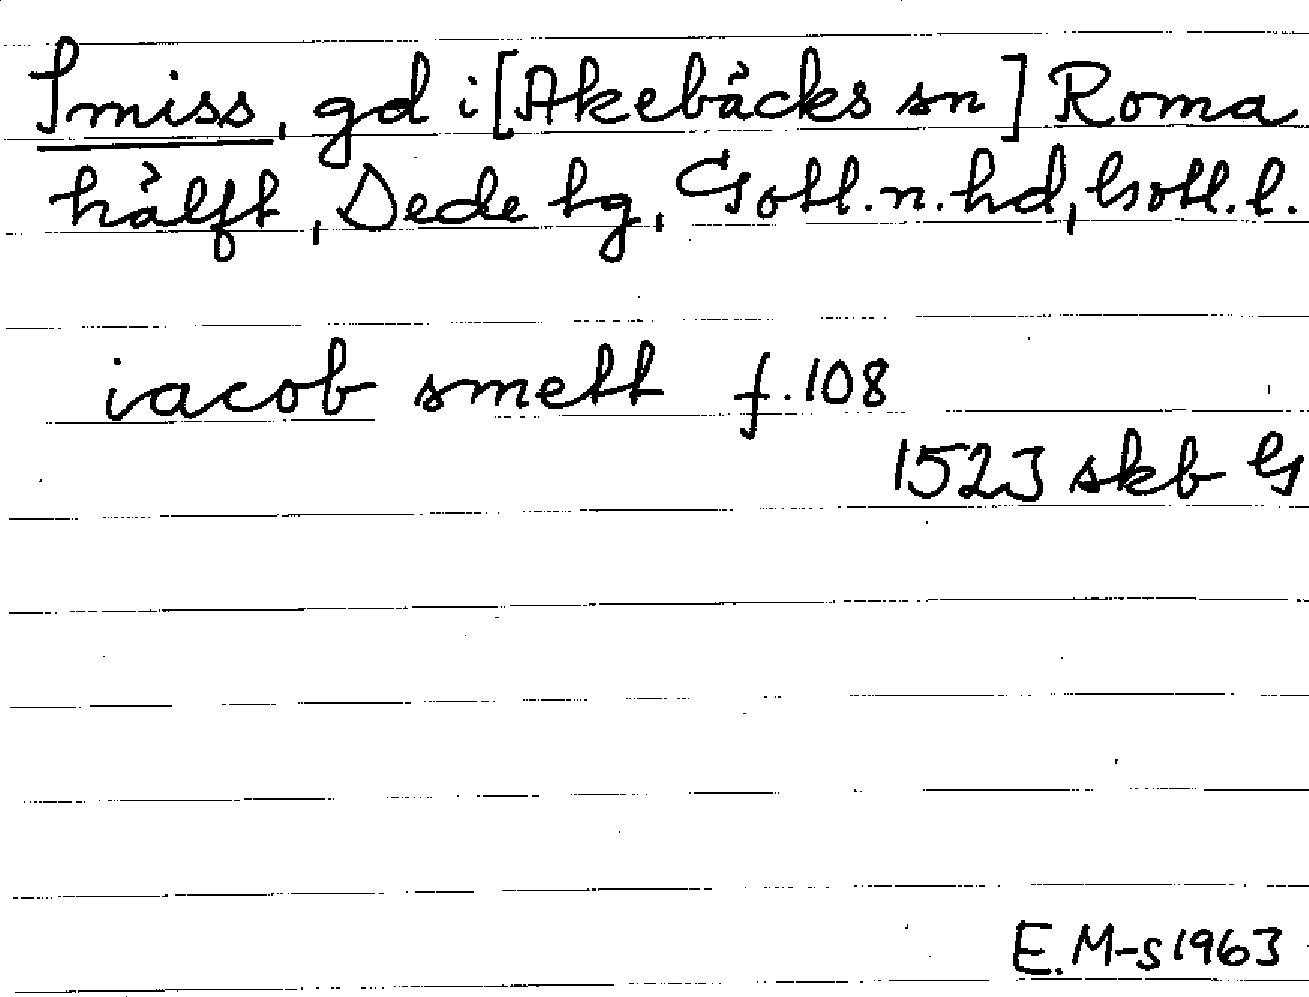 Smiss, gd i [Akebäcks sn] Roma
hälft, Dede tg, Gotl. n. hd, Gotl. l.
iacob smett f. 108
1523 skb G
E. M-s 1963